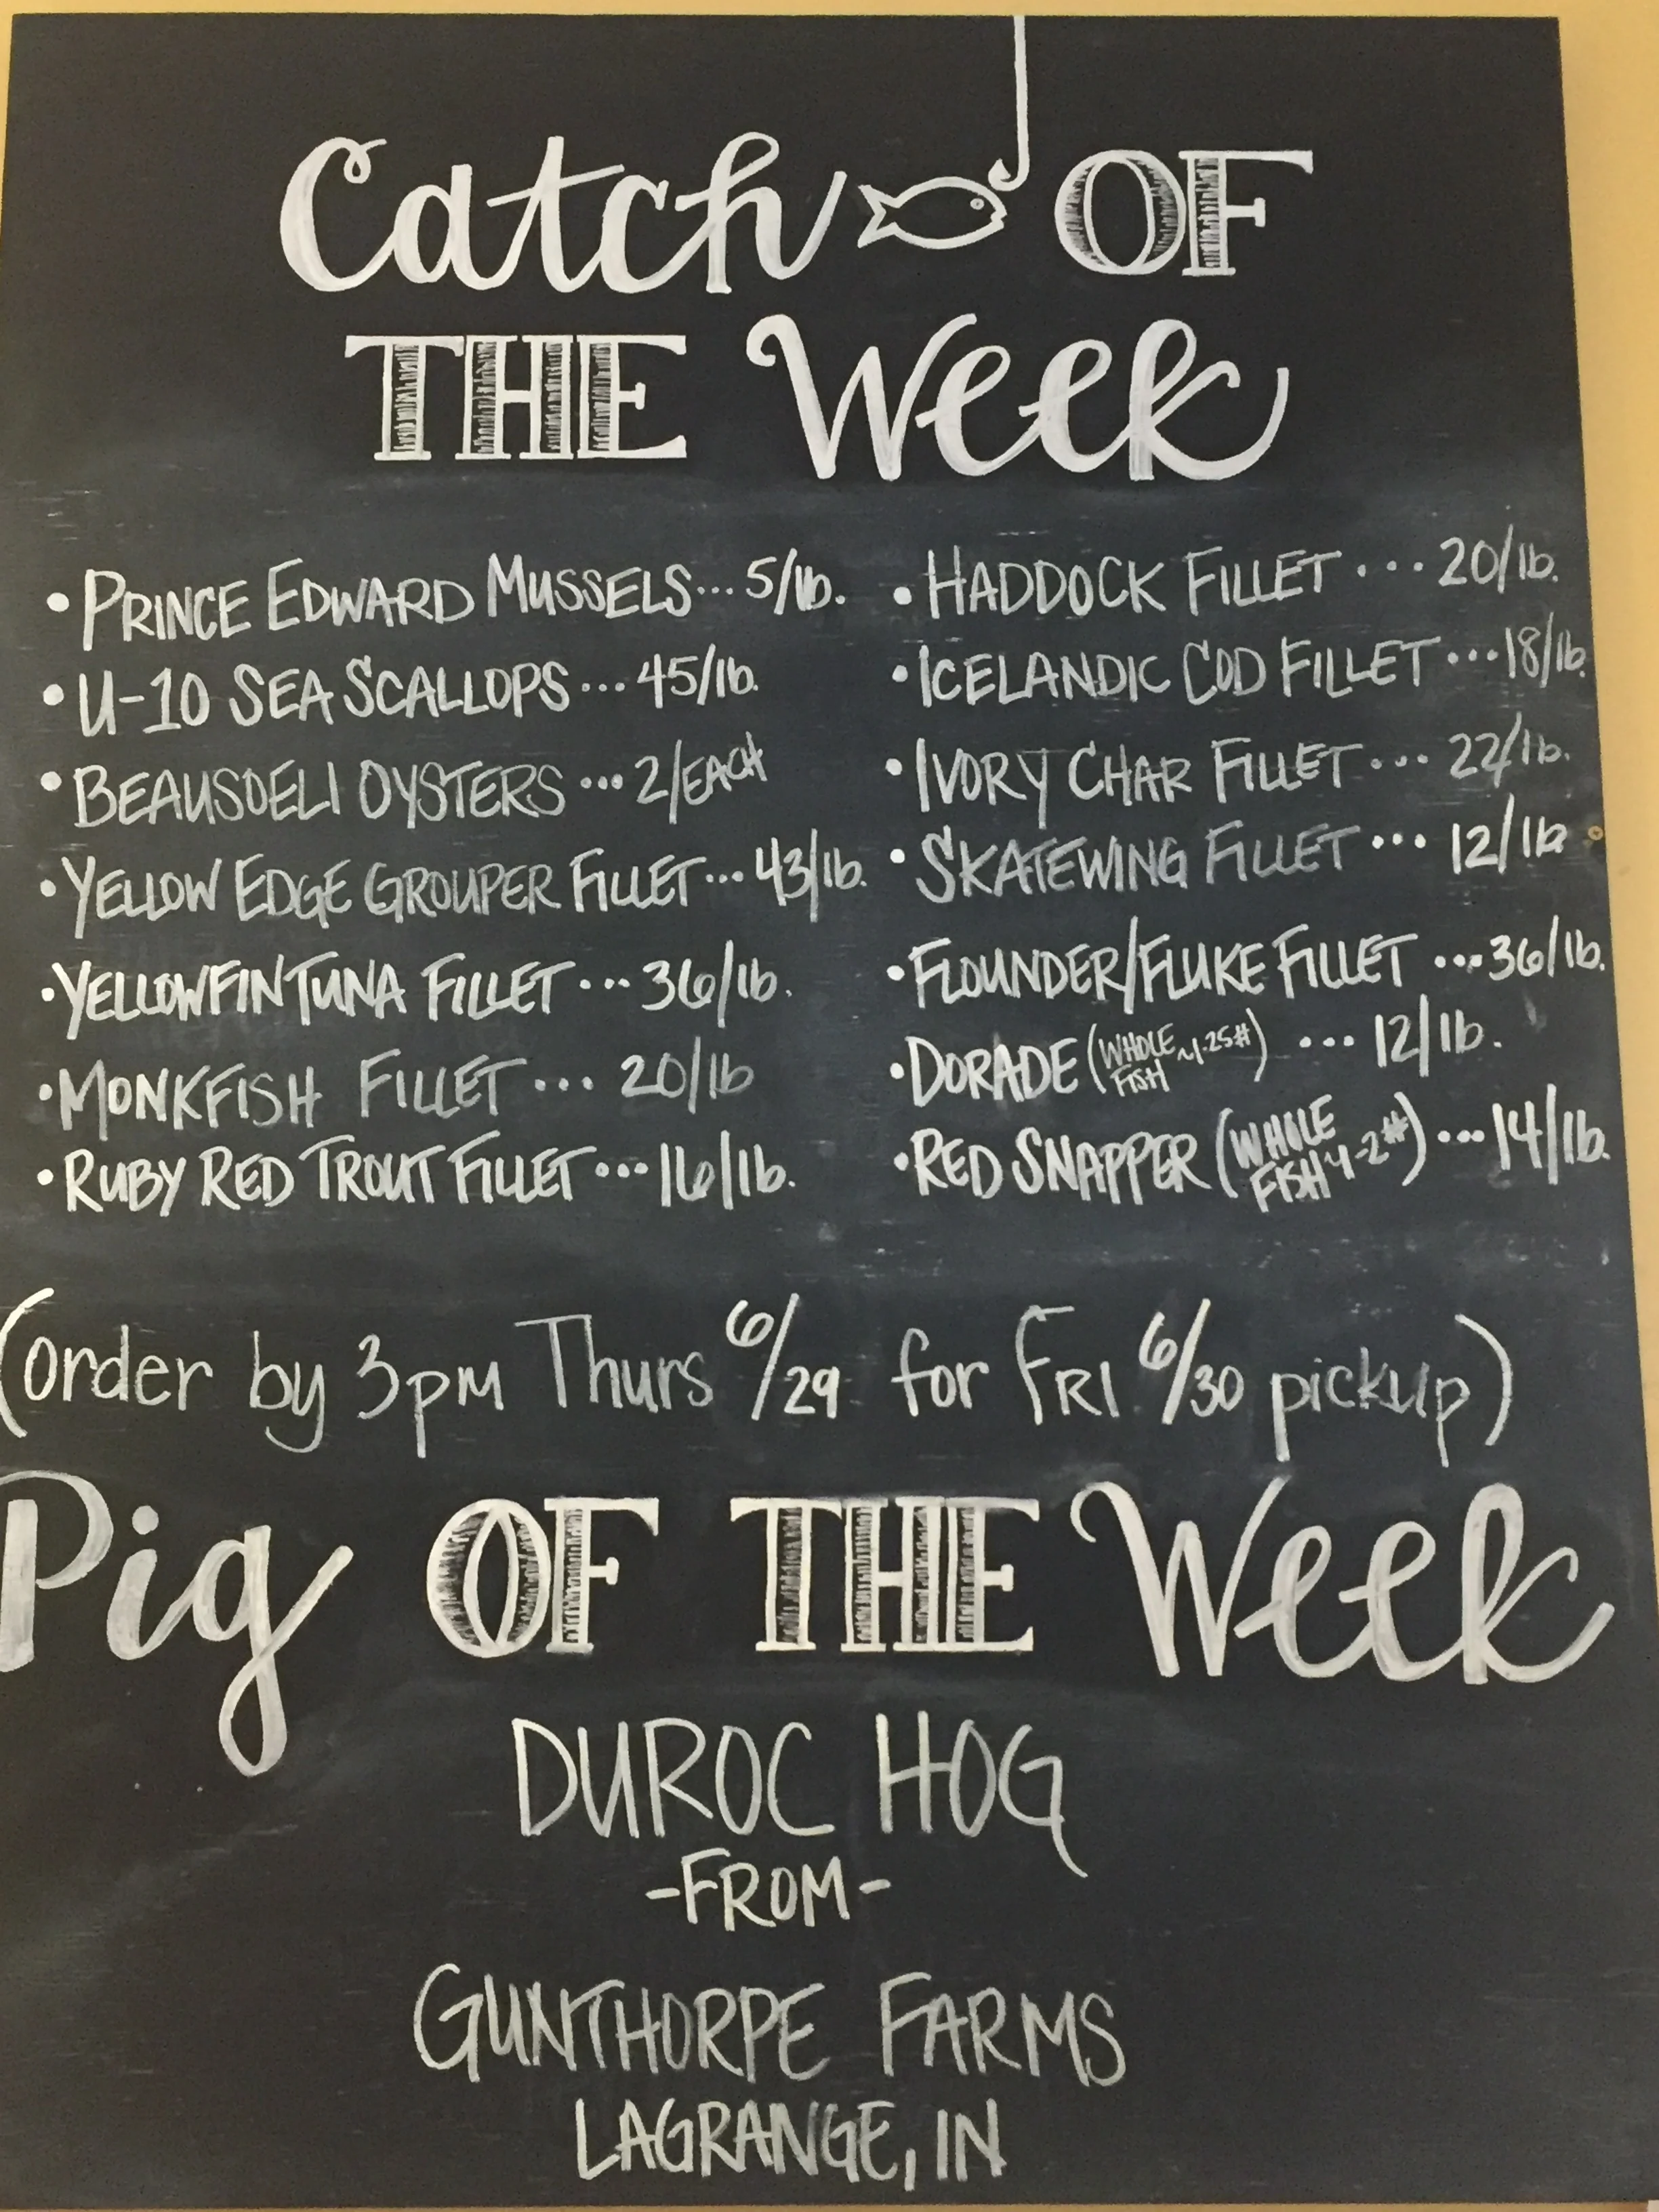 Catch OF
THE Week
• PRINCE EDWARD MUSSELS... 5/lb.
• U-10 SEA SCALLOPS ... 45/lb.
• BEAUSOELI OYSTERS ... 2/EACH
• YELLOW EDGE GROUPER FILLET... 43/lb.
• YELLOWFIN TUNA FILLET ... 36/lb.
• MONKFISH FILLET ... 20/lb
• RUBY RED TROUT FILLET ... 16/lb.
• HADDOCK FILLET .... 20/lb.
• ICELANDIC COD FILLET ... 18/lb.
• IVORY CHAR FILLET ... 22/lb.
• SKATEWING FILLET ... 12/lb
• FLOUNDER/FLUKE FILLET ... 36/lb.
• DORADE (WHOLE FISH ~1.25#) ... 12/lb.
• RED SNAPPER (WHOLE FISH 1-2#) ... 14/lb.
(order by 3pm Thurs 6/29 for FRI 6/30 pickup)
Pig OF THE Week
DUROC HOG
-FROM-
GUNTHORPE FARMS
LAGRANGE, IN